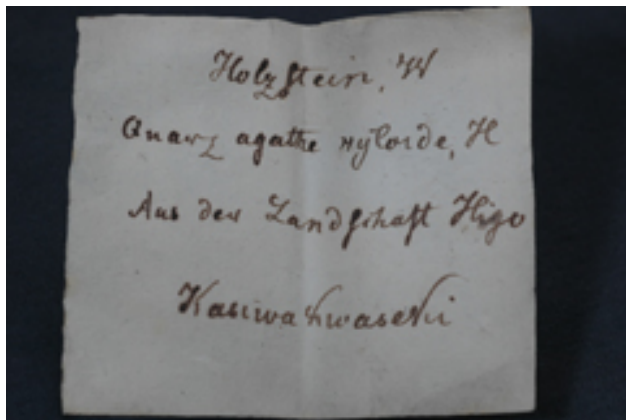 Holzstein, W
Quarz agathe xyloide, H
Aus der Landschaft Higo
Kasiwakwaseki